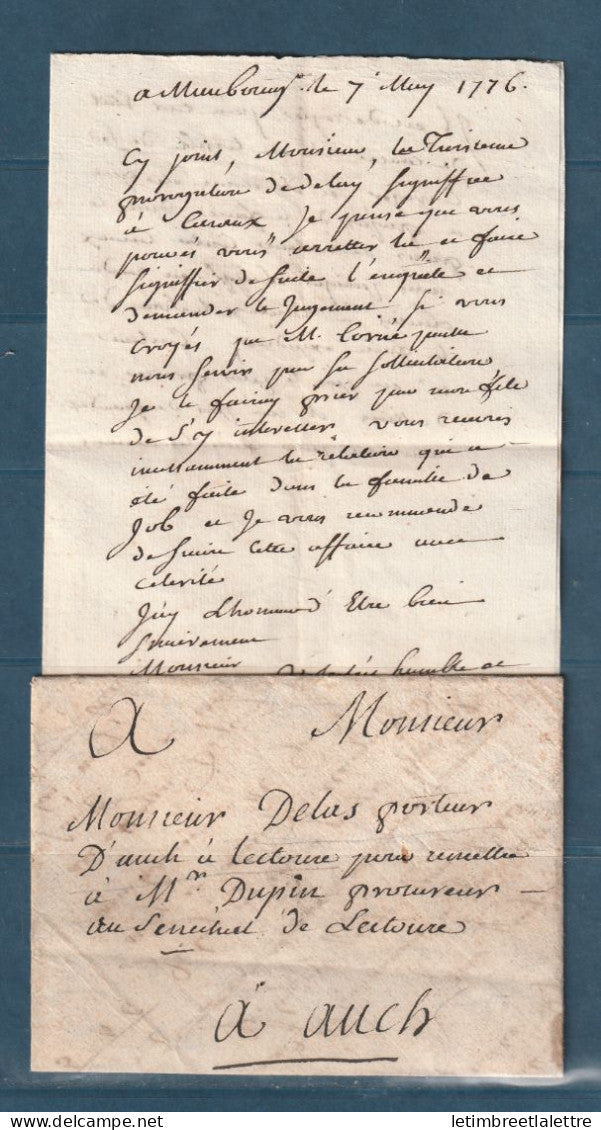 a le 7 May 1776.
Cy joint, Monsieur, la Troisieme
prorogation de delay signiffiée
à je pense que vous
pouvés vous arretter la et faire
signiffier de suite l'enquête et
demander le Jugement si vous
croyés que M. puisse
nous servir par sa sollicitation
Je le fairay prier par mon fils
de s'y interesser vous recevrés
incessamment la relation qui a
été faite dans la famille de
Job et je vous recommende
de suivre cette affaire avec
celerité
J'ay L'honneur d'Etre bien
sincerement
Monsieur humble et
A Monsieur
Monsieur Delas porteur
D'auch à Lectoure pour remettre
à Mr. Dupin procureur
au Senechal de Lectoure
à auch
letimbreetlalettre